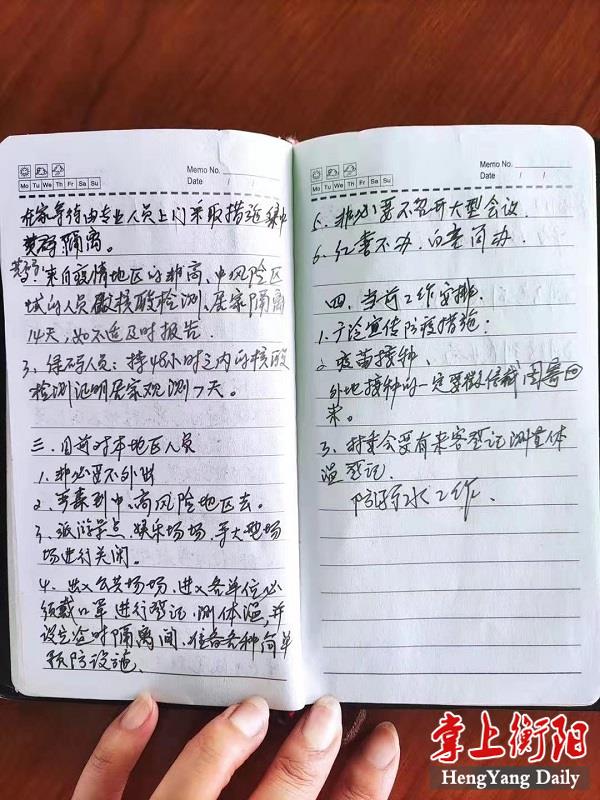 Memo No.
Mo Tu We Th Fr Sa Su
Date / /
在家等待由专业人员上门采取措施集中
隔离。
来自疫情地区的非高、中风险区
域的人员做核酸检测、居家隔离
14天,如不适及时报告.
3、绿码人员:持48小时之内的核酸
检测证明居家观测7天。
三、目前对本地区人员
1.非必要不外出
2、到中、高风险地区去。
3、旅游景点、娱乐场场、等大型场
场进行关闭。
4、出入公共场场,进入各单位必
须戴口罩进行登记,测体温,并
设立临时隔离间,准备各种简单
预防设施、
Memo No.
Mo Tu We Th Fr Sa Su
Date / /
5、非必要不召开大型会议.
6、红喜不办,白喜简办.
四、当前工作安排.
1.广泛宣传防疫措施:
2、疫苗接种、
外地接种的一定要微信截图回
来。
3、村委会要有来客登记测量体
温登记.
防水工作.
掌上衡阳
HengYang Daily